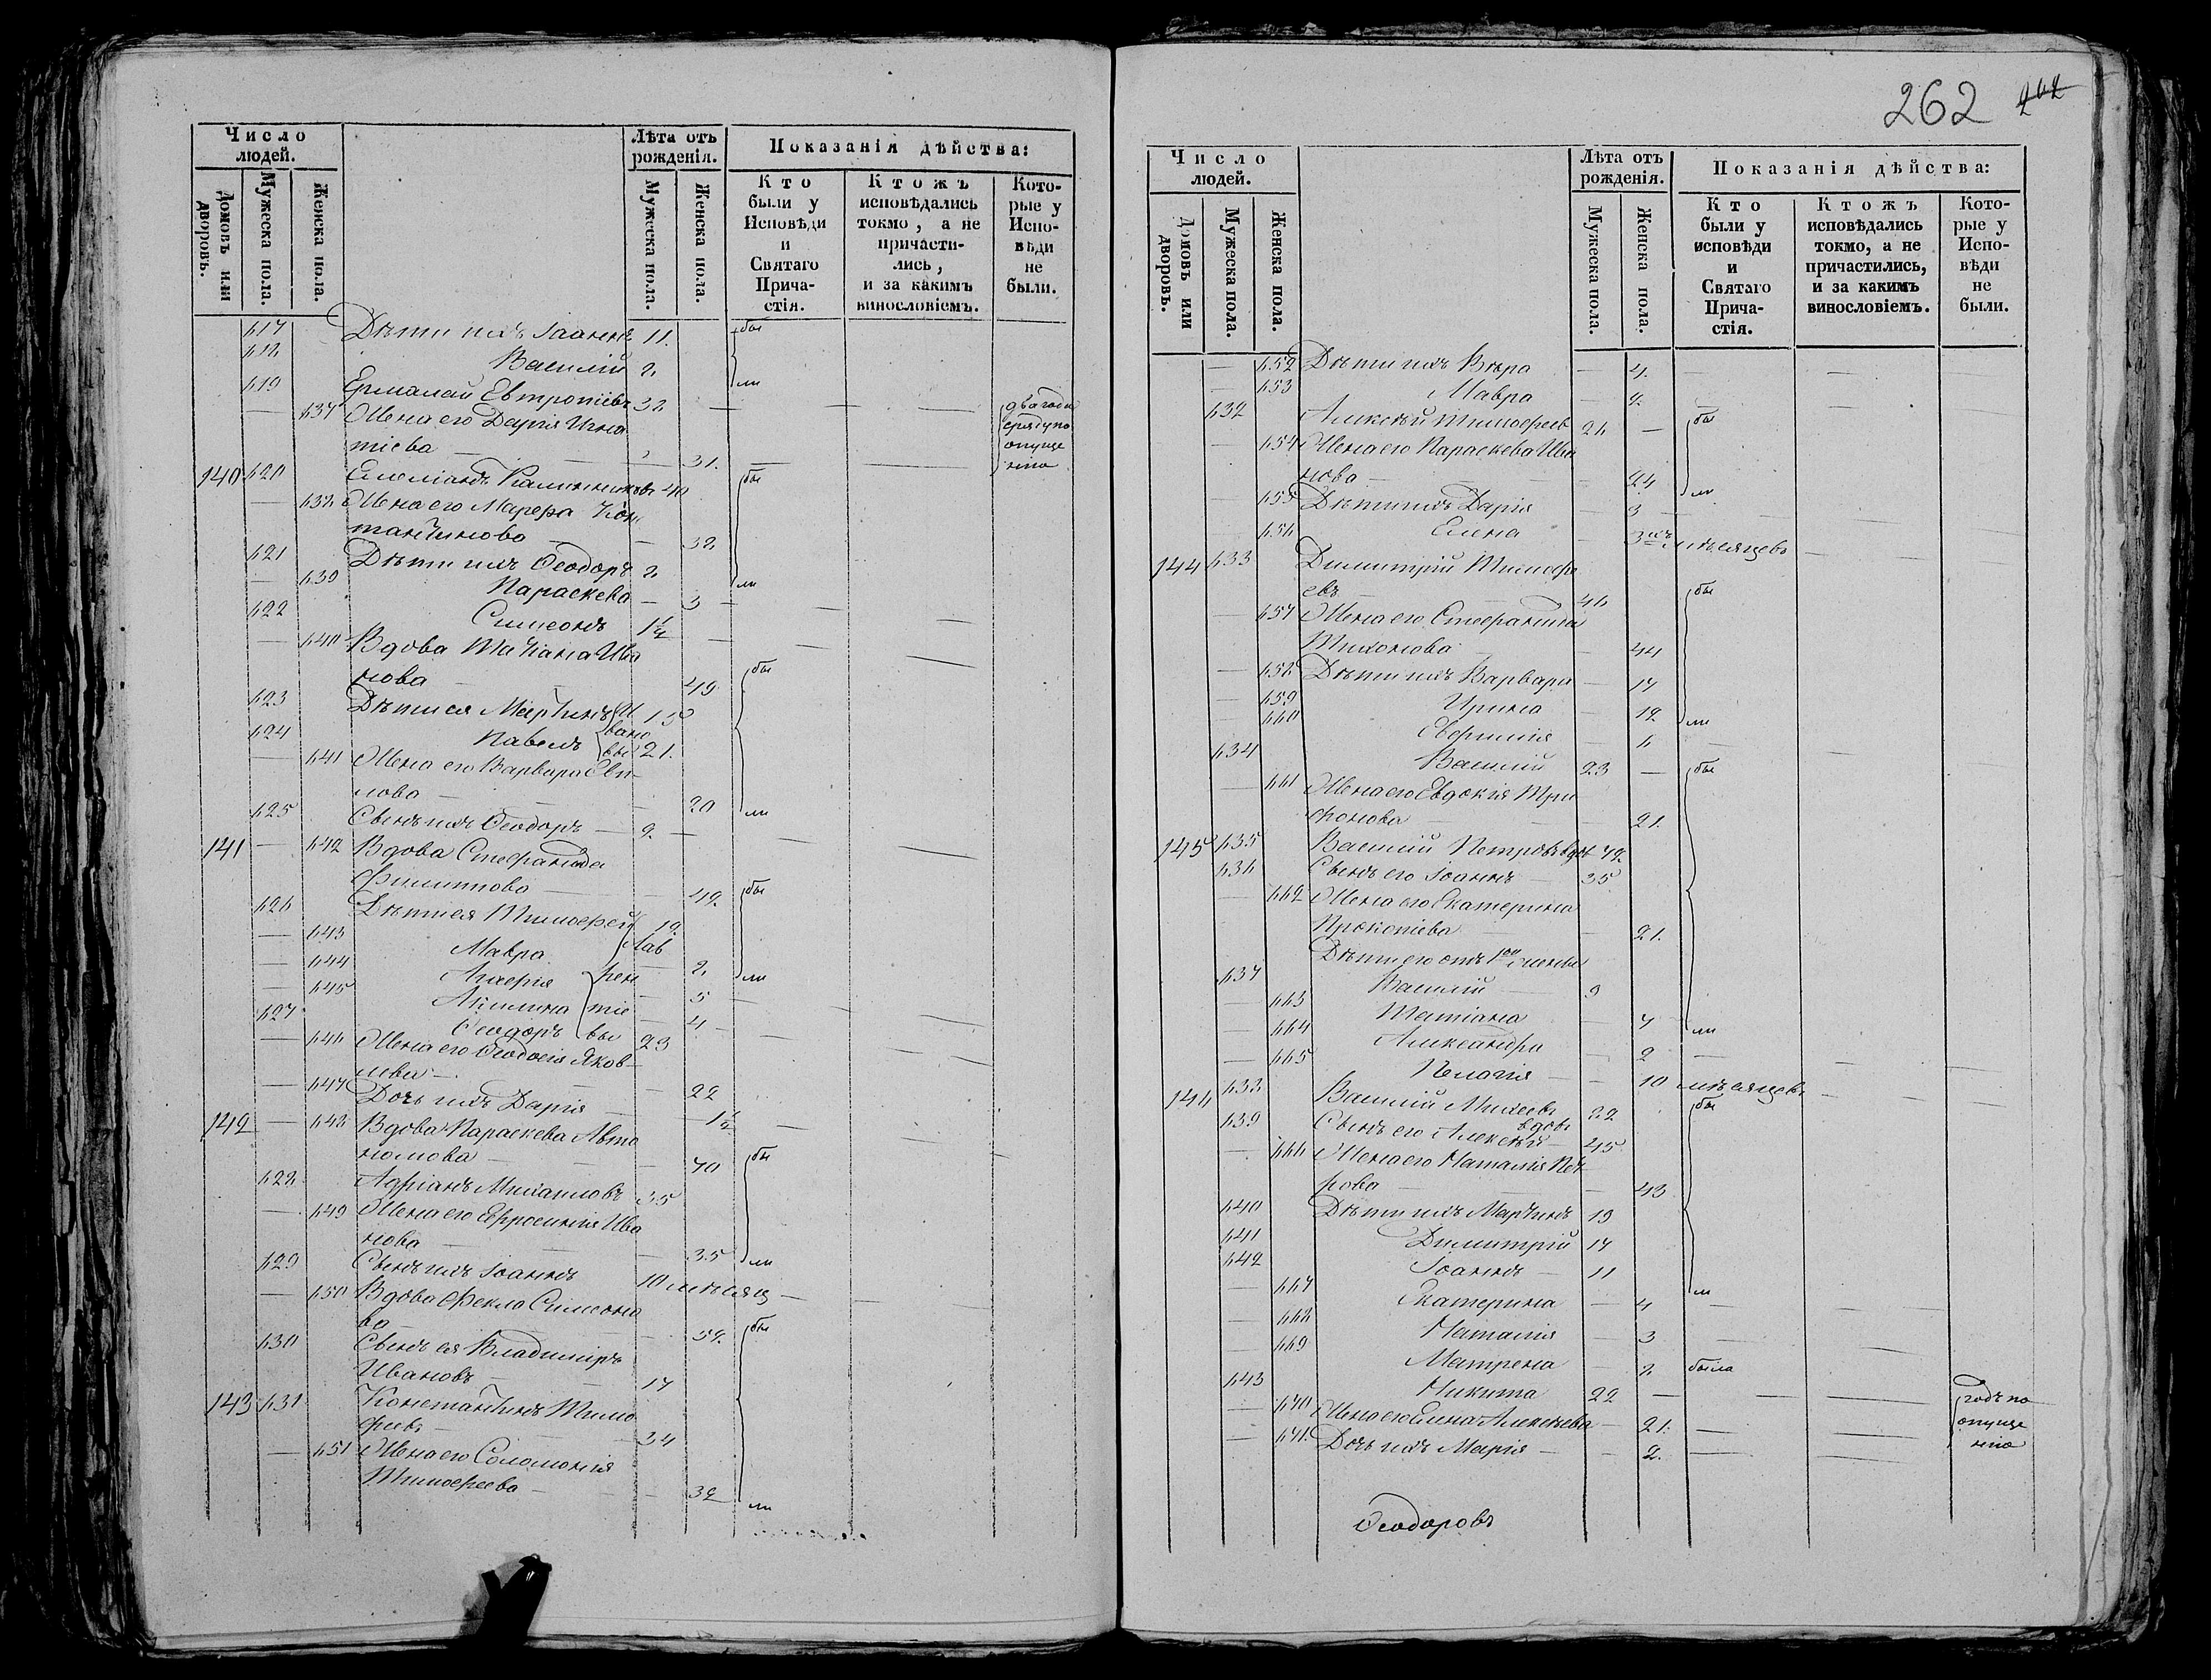 262 262
Число людей.
Лѣта отъ рожденія.
Показанія дѣйства:
Домовъ или дворовъ.
Мужеска пола.
Женска пола.
Мужеска пола.
Женска пола.
Кто были у Исповѣди и Святаго Прича-стія.
Ктожъ исповѣдались токмо, а не причасти-лись, и за какимъ винословіемъ.
Кото-рые у Испо-вѣди не были.
617 Дѣти ихъ Іоаннъ 11. бы
618 Василій 8 ли
619 Ермалай Евтропіевъ 38 — — два года
— 637 Жена его Дарія Игна сряду по
тіева — — 31. — — опуще нію
140 620 Емеліанъ Калинниковъ 40 бы
— 638 Жена его Марѳра Кон
тантинова — 38
621 Дѣти ихъ Ѳеодоръ 8
— 639 Параскева — 3 — ли
622 Симеонъ 1½ — — —
— 640 Вдова Татіана Ива
нова — 49 бы
623 Дѣти ея Мартинъ И 15
624 Павелъ вано вы 21.
— 641 Жена его Варвара
лова — — 20
625 Сынъ ихъ Ѳеодоръ — 2 — ли
141 — 642 Вдова Стефанида
Филиппова — — 42 бы
626 Дѣти ея Тимофей 12
— 643 Мавра Лав — 8
— 644 рен — 5 ли
— 645 Акилина тіе — 4 —
627 Ѳеодоръ вы 23
— 646 Жена его Ѳеодосія Яков
лева — — 22
— 647 Дочь ихъ Дарія — — 1½
142 — 648 Вдова Параскева Авто
номова — — 70 бы
628 Адріанъ Михаиловъ 35
— 649 Жена его Евфросинія Ива
нова — — 35 ли
629 Сынъ ихъ Іоаннъ 10 мѣсяц —
— 650 Вдова Фекла Симеоно
ва — — 52 бы
630 Сынъ ея Владимиръ
Ивановъ — 17
143 631 Константинъ Тимо
феевъ — 34
— 651 Жена его Соломонія
Тимофеева — — 32 ли
Число людей.
Лѣта отъ рожденія.
Показанія дѣйства:
Домовъ или дворовъ.
Мужеска пола.
Женска пола.
Мужеска пола.
Женска пола.
Кто были у исповѣди и Святаго Прича-стія.
Ктожъ исповѣдались токмо, а не причастились, и за какимъ винословіемъ.
Кото-рые у Испо-вѣди не были.
— 652 Дѣти ихъ Вѣра — 4. — —
— 653 Мавра — 2. —
632 Алексѣй Тимофеевъ 26 — бы
— 654 Жена его Параскева Ива
нова — — 24 ли
— 655 Дѣти ихъ Дарія — 3 —
— 656 Елена — 3хъ мѣсяцевъ —
144 633 Димитрій Тимофе
евъ — 46 бы
— 657 Жена его Стефанида
Тихонова — — 44
— 658 Дѣти ихъ Варвара — 17
— 659 Ирина — 12 ли
660 Евфимія — 6 —
634 Василій 23 — бы
— 661 Жена его Евдокія Три
фонова — — 21.
145 635 Василій Петровъ вдов 72
636 Сынъ его Іоаннъ — 35
— 662 Жена его Екатерина
Прокопіева — — 21.
Дѣти его отъ 1ой жены
637 Василій — 9
— 663 Татіана — 7 ли
664 Александра — 2 —
— 665 Пелагія — — 10 мѣсяцевъ —
146 638 Василій Михеевъ вдовъ 82 бы
639 Сынъ его Алексѣй — 45
— 666 Жена его Наталія Пет
рова — — 43
640 Дѣти ихъ Мартинъ 19
641 Димитрій 17
642 Іоаннъ — 11
— 667 Екатерина — 4 ли
— 668 Наталія — 3 —
— 669 Матрена — 8 была
643 Никита 22 — — — годъ по
— 670 Жена его Елена Алексѣева — 21. — — опуще
— 671. Дочь ихъ Марія — — 2. — — нію
Ѳеодоровъ